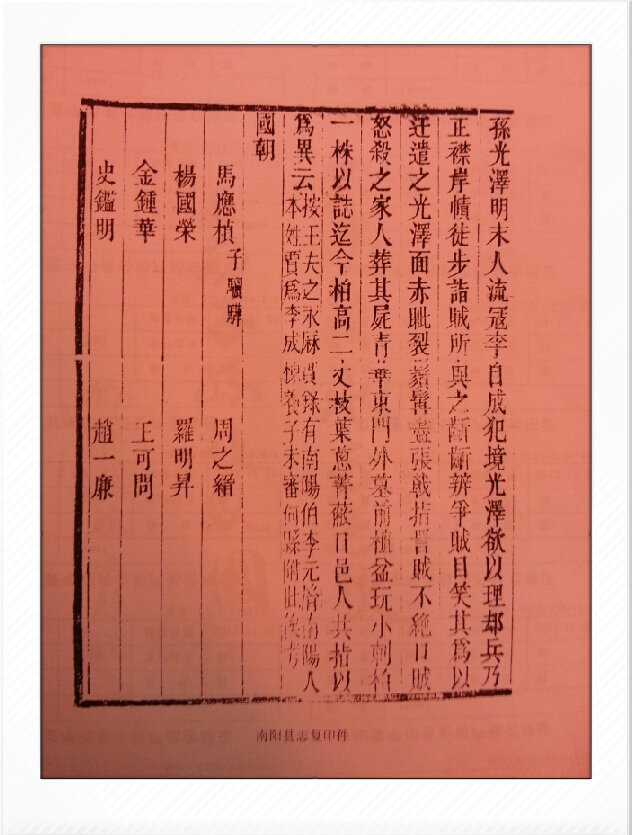 孫光澤明末人流寇李自成犯境光澤欲以理却兵乃
正襟岸幘徒步詣賊所與之齗齗辨爭賊目笑其為以
迂遣之光澤面赤眦裂鬚髯盡張戟指詈賊不絕口賊
怒殺之家人葬其屍青華東門外墓前植盆玩小刺柏
一株以誌迄今柏高二丈枝葉蔥菁蔽日邑人共指以
為異云按王夫之永厯實錄有南陽伯李元𦙍南陽人
本姓賈為李成棟養子未審何縣附此俟考
國朝
馬應楨子驥驊 周之縉
楊國榮 羅明昇
金鍾華 王可問
史鑑明 趙一廉
南阳县志复印件